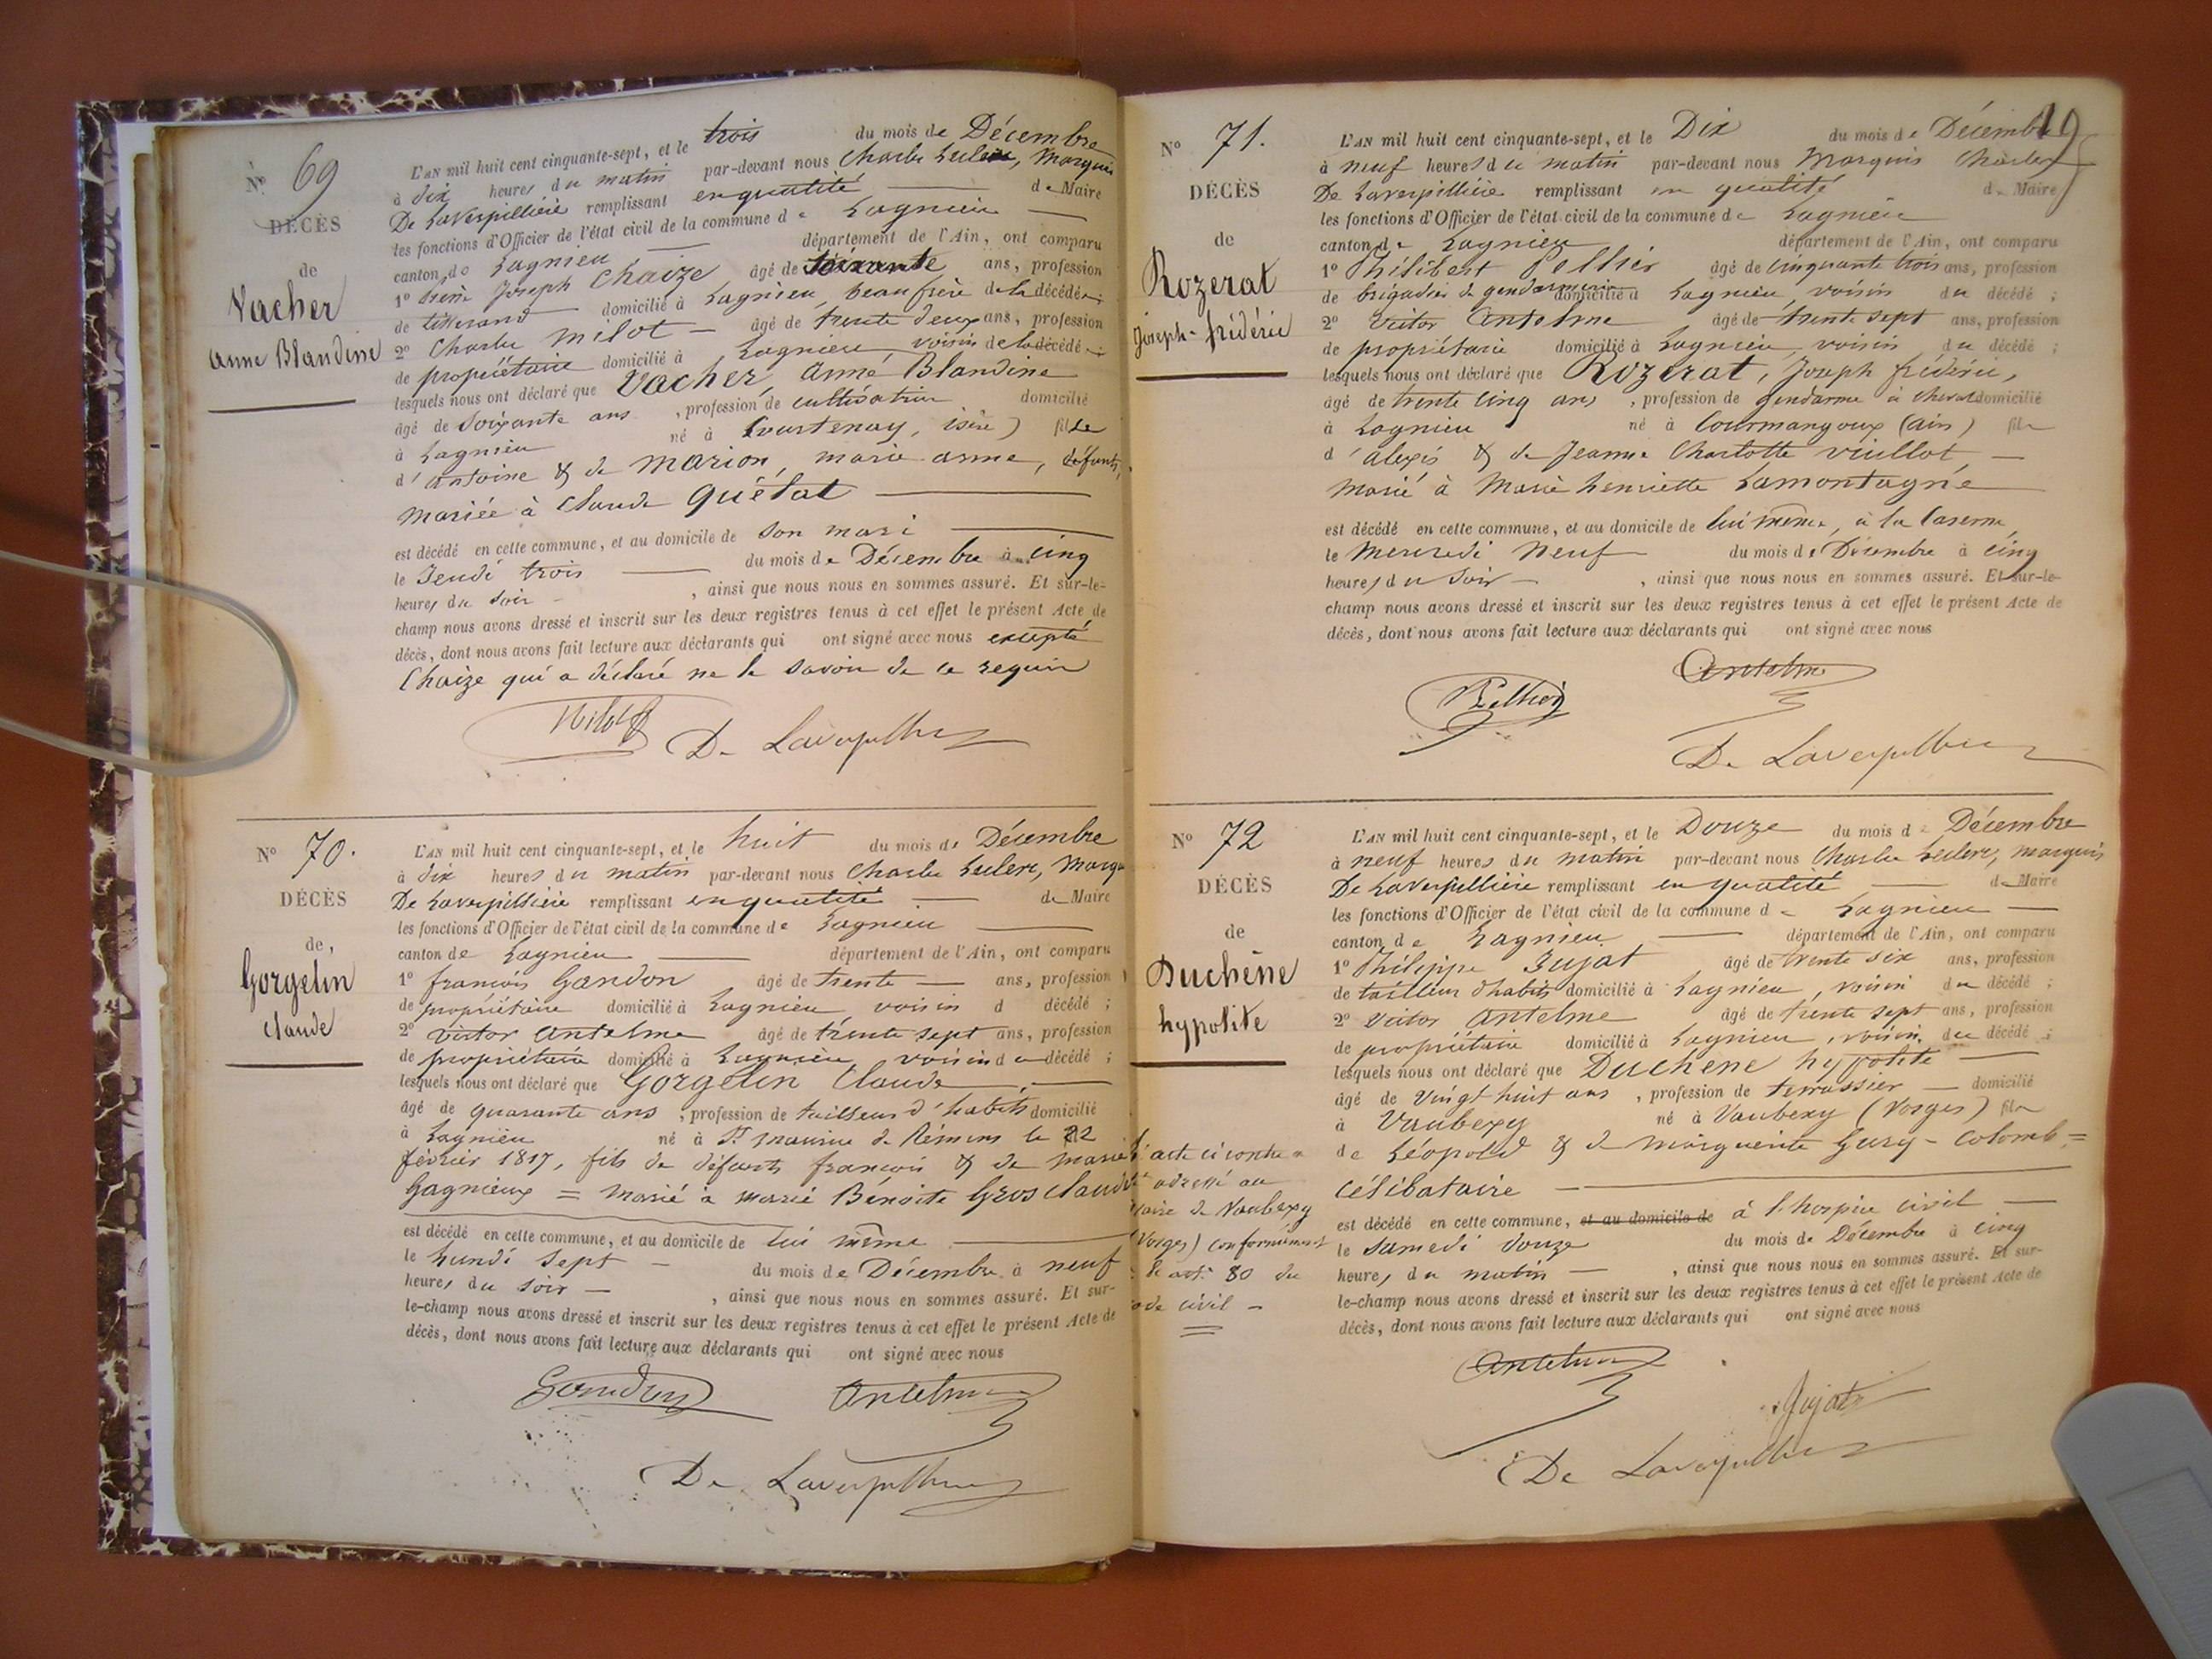 N° 69
DÉCÈS
de
Vacher
Anne Blandine
L'AN mil huit cent cinquante-sept, et le trois du mois de Décembre
à dix heures du matin par-devant nous Charles Leclerc, Marquis
De Laverpillière remplissant en qualité de Maire
les fonctions d'Officier de l'état civil de la commune de Lagnieu
canton de Lagnieu département de l'Ain, ont comparu
1° Joseph Chaize âgé de soixante ans, profession
de tisserand domicilié à Lagnieu, beau frère de la décédée;
2° Charles Milot âgé de trente deux ans, profession
de propriétaire domicilié à Lagnieu voisin de la décédée;
lesquels nous ont déclaré que Vacher, Anne Blandine
âgé de soixante ans, profession de cultivatrice domicilié
à Lagnieu né à Courtenay, isère) fille
d'antoine & de Marion, marie anne, défunts,
mariée à Claude Quétat
est décédé en cette commune, et au domicile de son mari
le Jeudi trois du mois de Décembre à cinq
heures du soir, ainsi que nous nous en sommes assuré. Et sur-le-
champ nous avons dressé et inscrit sur les deux registres tenus à cet effet le présent Acte de
décès, dont nous avons fait lecture aux déclarants qui ont signé avec nous excepté
Chaize qui a déclaré ne le savoir de ce requis
Milot
De Laverpillière
N° 70.
DÉCÈS
de
Gorgelin
Claude
L'AN mil huit cent cinquante-sept, et le huit du mois de Décembre
à dix heures du matin par-devant nous Charles Leclerc, Marqu
De Laverpillière remplissant en qualité de Maire
les fonctions d'Officier de l'état civil de la commune de Lagnieu
canton de Lagnieu département de l'Ain, ont comparu
1° françois Gandon âgé de trente ans, profession
de propriétaire domicilié à Lagnieu voisin d décédé;
2° victor antelme âgé de trente sept ans, profession
de propriétaire domicilié à Lagnieu, voisin du décédé;
lesquels nous ont déclaré que Gorgelin Claude
âgé de quarante ans, profession de tailleur d'habits domicilié
à Lagnieu né à St maurice de Rémens le 22
février 1817, fils de défunts françois & de marie
Gagnieux = marié à marie Bénoite Gros Claude
est décédé en cette commune, et au domicile de lui même
le Lundi sept du mois de Décembre à neuf
heures du soir, ainsi que nous nous en sommes assuré. Et sur-
le-champ nous avons dressé et inscrit sur les deux registres tenus à cet effet le présent Acte de
décès, dont nous avons fait lecture aux déclarants qui ont signé avec nous
Gandon Antelme
De Laverpillière
19
N° 71.
DÉCÈS
de
Rozerat
Joseph-frédéric
L'AN mil huit cent cinquante-sept, et le Dix du mois de Décembre
à neuf heures du matin par-devant nous Marquis Charles
De Laverpillière remplissant en qualité de Maire
les fonctions d'Officier de l'état civil de la commune de Lagnieu
canton de Lagnieu département de l'Ain, ont comparu
1° Philibert Pellier âgé de cinquante trois ans, profession
de brigadier de gendarmerie domicilié à Lagnieu, voisin du décédé;
2° Victor Antelme âgé de trente sept ans, profession
de propriétaire domicilié à Lagnieu, voisin du décédé;
lesquels nous ont déclaré que Rozerat, Joseph frédéric,
âgé de trente cinq ans, profession de gendarme à cheval domicilié
à Lagnieu né à Courmangoux (ain) fils
d'alexis & de Jeanne Charlotte Vuillot
marié à Marie henriette Lamontagne
est décédé en cette commune, et au domicile de lui même, à la Caserne
le Mercredi Neuf du mois de Décembre à cinq
heures du soir, ainsi que nous nous en sommes assuré. Et sur-le-
champ nous avons dressé et inscrit sur les deux registres tenus à cet effet le présent Acte de
décès, dont nous avons fait lecture aux déclarants qui ont signé avec nous
Antelme
Pellier
De Laverpillière
N° 72
DÉCÈS
de
Duchêne
hypolite
acte ci contre a
adressé au
maire de Vaubexy
(Vosges) conformément
à l'art. 80 du
code civil
L'AN mil huit cent cinquante-sept, et le Douze du mois de Décembre
à neuf heures du matin par-devant nous Charles Leclerc, marquis
De Laverpillière remplissant en qualité de Maire
les fonctions d'Officier de l'état civil de la commune de Lagnieu
canton de Lagnieu département de l'Ain, ont comparu
1° Philippe Jujat âgé de trente six ans, profession
de tailleur d'habits domicilié à Lagnieu, voisin du décédé;
2° Victor Antelme âgé de trente sept ans, profession
de propriétaire domicilié à Lagnieu, voisin, du décédé;
lesquels nous ont déclaré que Duchene hypolite
âgé de vingt huit ans, profession de terrassier domicilié
à Vaubexy né à Vaubexy (Vosges) fils
de Léopold & de marguerite Gury-Colomb=
célibataire
est décédé en cette commune, et au domicile de à l'hospice civil
le samedi douze du mois de Décembre à cinq
heures du matin, ainsi que nous nous en sommes assuré. Et sur-
le-champ nous avons dressé et inscrit sur les deux registres tenus à cet effet le présent Acte de
décès, dont nous avons fait lecture aux déclarants qui ont signé avec nous
Antelme
Jujat
De Laverpillière